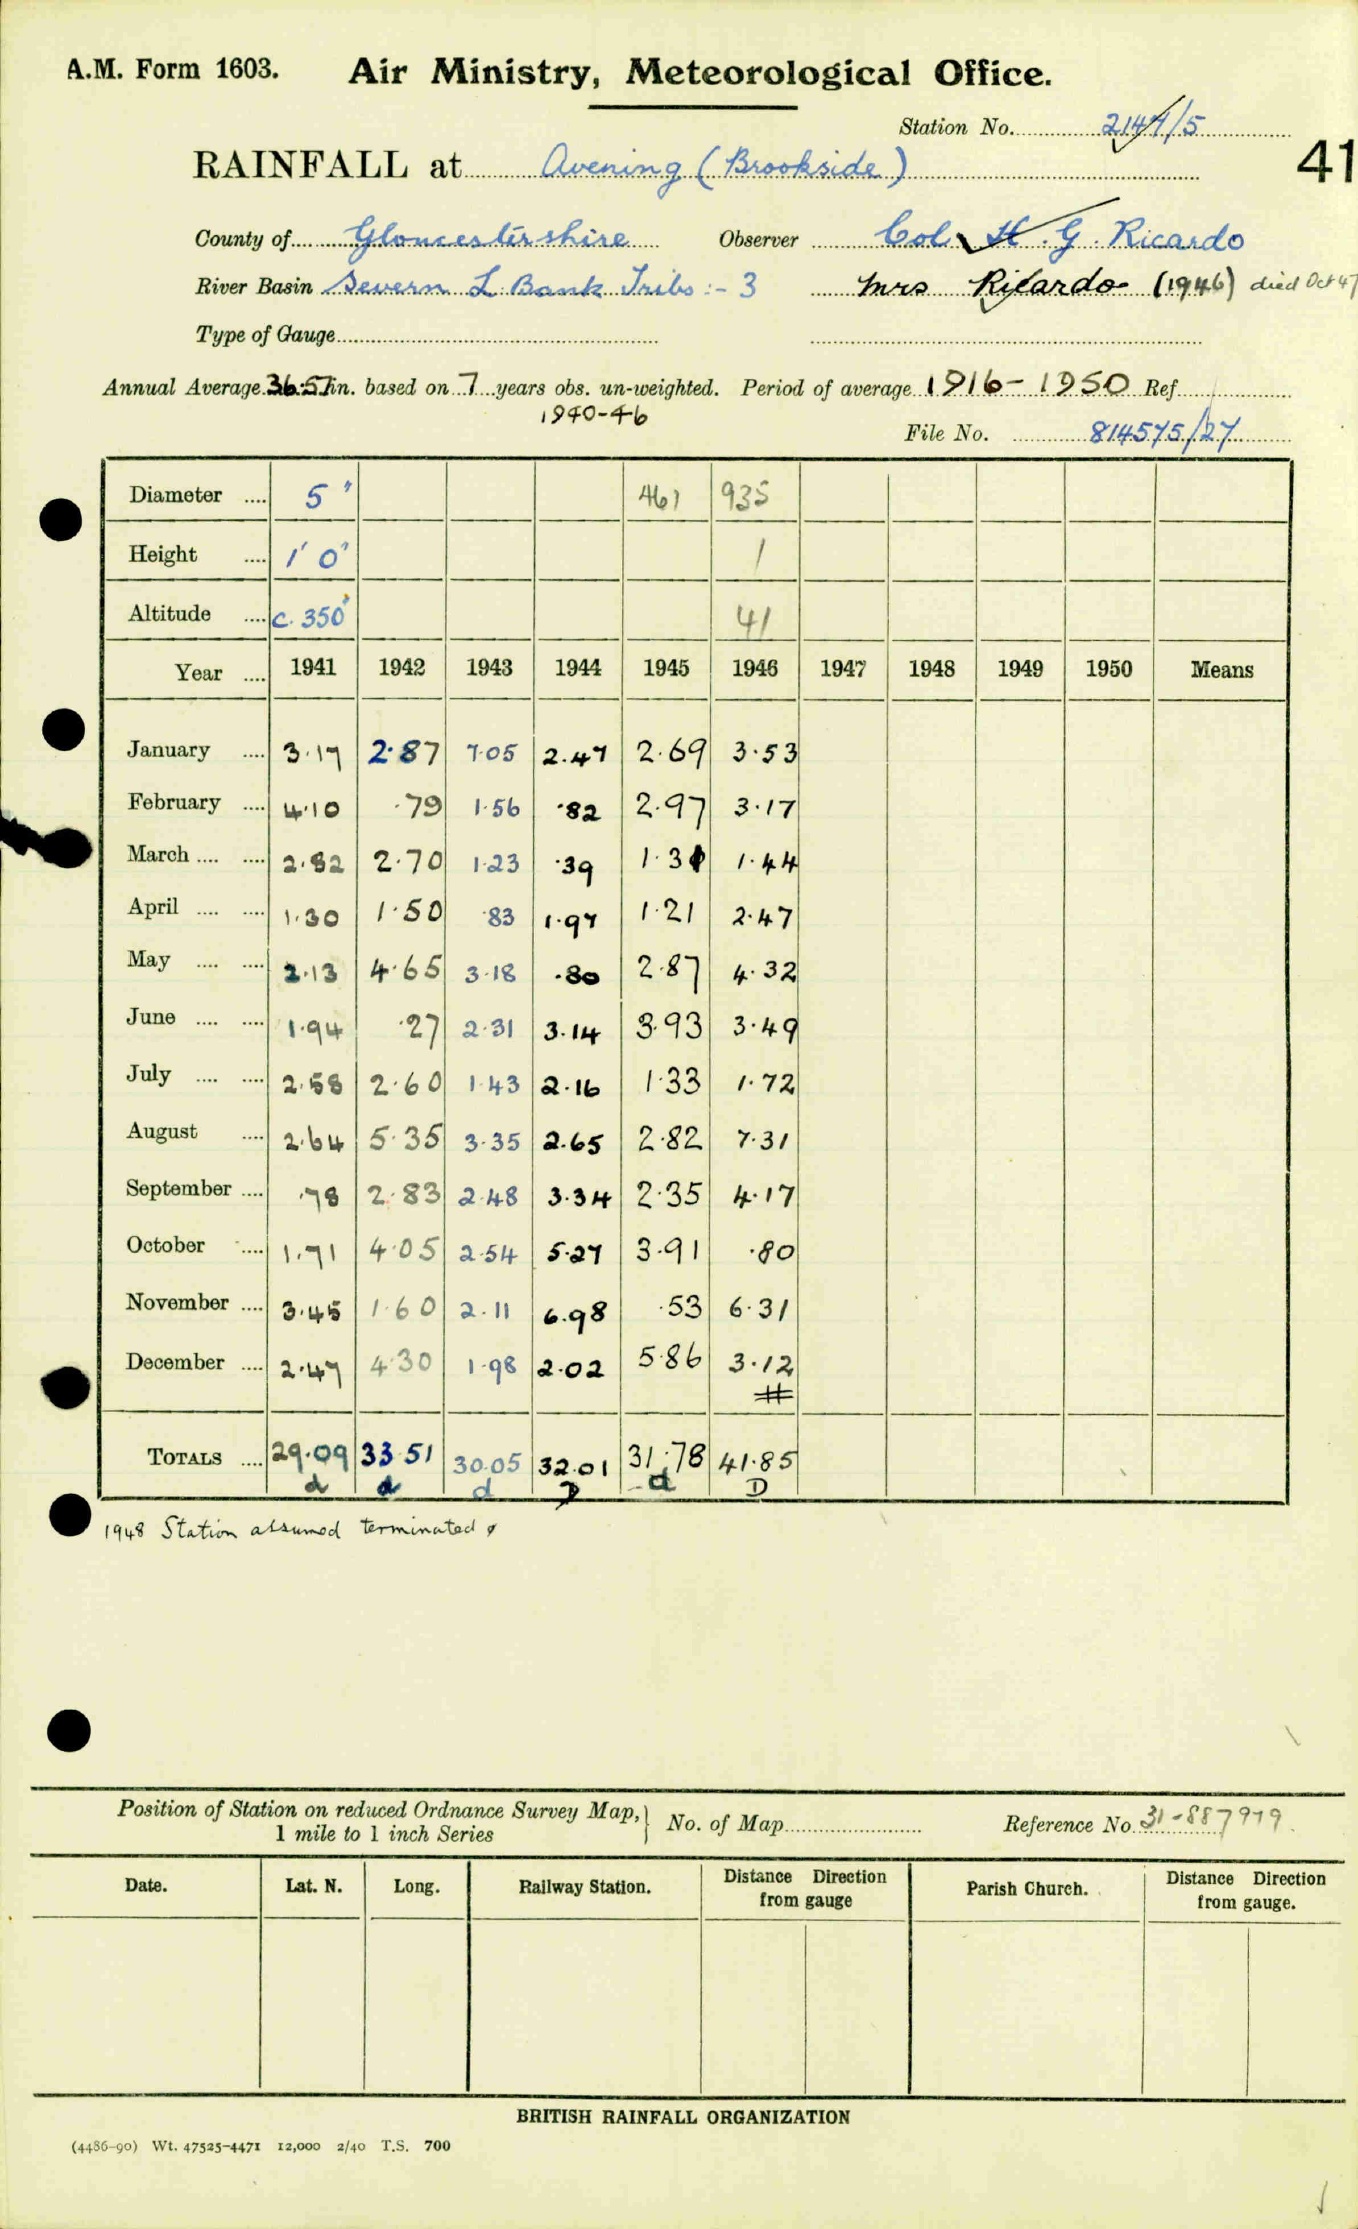 A.M. Form 1603. Air Ministry, Meteorological Office.
Station No. 2144/5
RAINFALL at Avening (Brookside) 41
County of Gloucestershire Observer Col H. G. Ricardo
River Basin Severn L Bank Tribs :- 3 Mrs Ricardo (1946) died Oct 47
Type of Gauge
Annual Average 36.57 in. based on 7 years obs. un-weighted. Period of average 1916-1950 Ref
1940-46
File No. 814575/27
Diameter .... 5" 461 935
Height .... 1' 0" 1
Altitude .... c. 350' 41
Year .... 1941 1942 1943 1944 1945 1946 1947 1948 1949 1950 Means
January .... 3.17 2.87 7.05 2.47 2.69 3.53
February .... 4.10 .79 1.56 .82 2.97 3.17
March .... .... 2.82 2.70 1.23 .39 1.31 1.44
April .... .... 1.30 1.50 .83 1.97 1.21 2.47
May .... .... 2.13 4.65 3.18 .80 2.87 4.32
June .... .... 1.94 .27 2.31 3.14 3.93 3.49
July .... .... 2.58 2.60 1.43 2.16 1.33 1.72
August .... 2.64 5.35 3.35 2.65 2.82 7.31
September .... .78 2.83 2.48 3.34 2.35 4.17
October .... 1.71 4.05 2.54 5.27 3.91 .80
November .... 3.45 1.60 2.11 6.98 .53 6.31
December .... 2.47 4.30 1.98 2.02 5.86 3.12
TOTALS .... 29.09 33.51 30.05 32.01 31.78 41.85
d d d D d D
1948 Station assumed terminated
Position of Station on reduced Ordnance Survey Map, No. of Map Reference No. 31-887979
1 mile to 1 inch Series
Date. Lat. N. Long. Railway Station. Distance from gauge Direction Parish Church. Distance from gauge. Direction
BRITISH RAINFALL ORGANIZATION
(4486-90) Wt. 47525-4471 12,000 2/40 T.S. 700